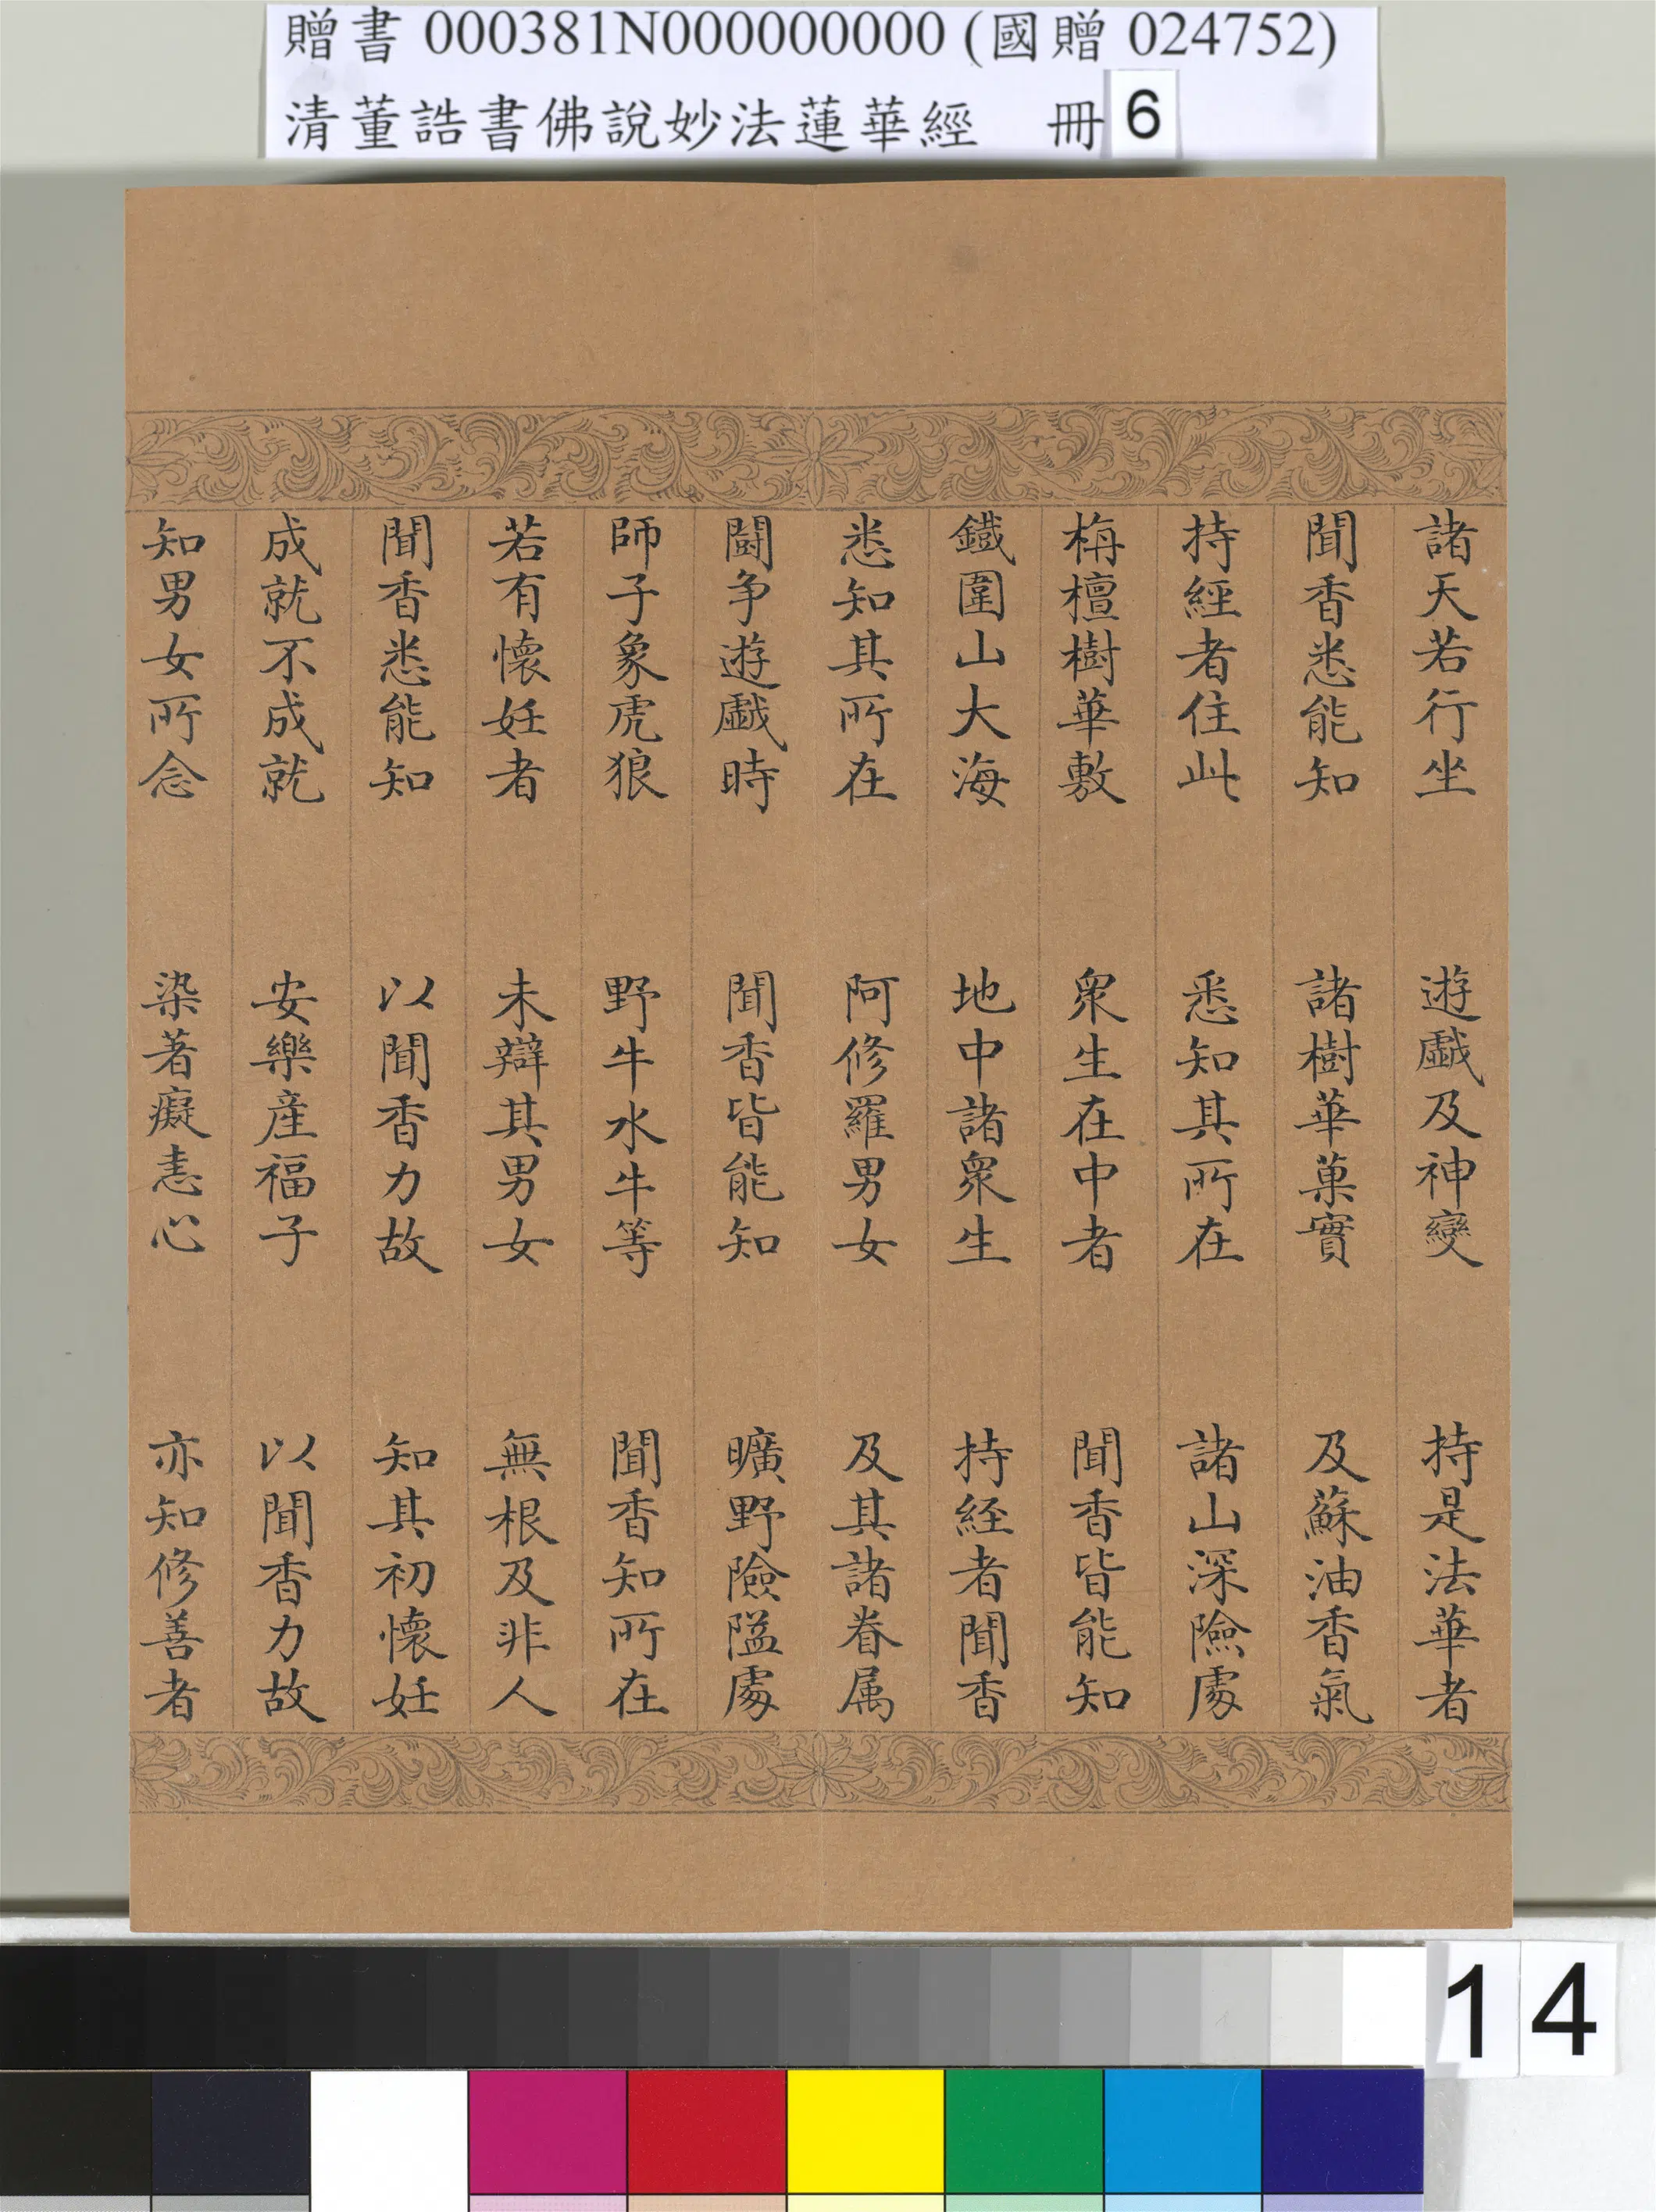 贈書 000381N000000000 (國贈 024752)
清董誥書佛說妙法蓮華經 冊 6
諸天若行坐 遊戲及神變 持是法華者
聞香悉能知 諸樹華菓實 及蘇油香氣
持經者住此 悉知其所在 諸山深險處
栴檀樹華敷 衆生在中者 聞香皆能知
鐵圍山大海 地中諸衆生 持経者聞香
悉知其所在 阿修羅男女 及其諸眷属
鬪争遊戲時 聞香皆能知 曠野險隘處
師子象虎狼 野牛水牛等 聞香知所在
若有懷妊者 未辯其男女 無根及非人
聞香悉能知 以聞香力故 知其初懷妊
成就不成就 安樂產福子 以聞香力故
知男女所念 染著癡恚心 亦知修善者
14